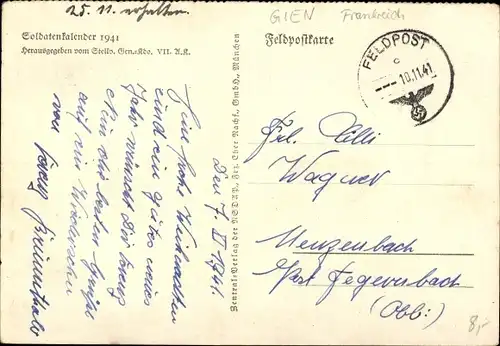 25.11. erhalten
GIEN Frankreich
Soldatenkalender 1941
Herausgegeben vom Stellv. Gen.-Kdo. VII. A.K.
Feldpostkarte
FELDPOST
c
10.11.41
Den 7. 1941.
Ein frohes Weihnachten
und ein gutes neues
Jahr wünscht Dir
Nun die besten Grüße
auf ein Wiedersehn
von
Zentral-Verlag der NSDAP., Frz. Eher Nachf. GmbH., München
Frl. Elli
Wagner
Post Tegernbach
(Obb.)
8,-